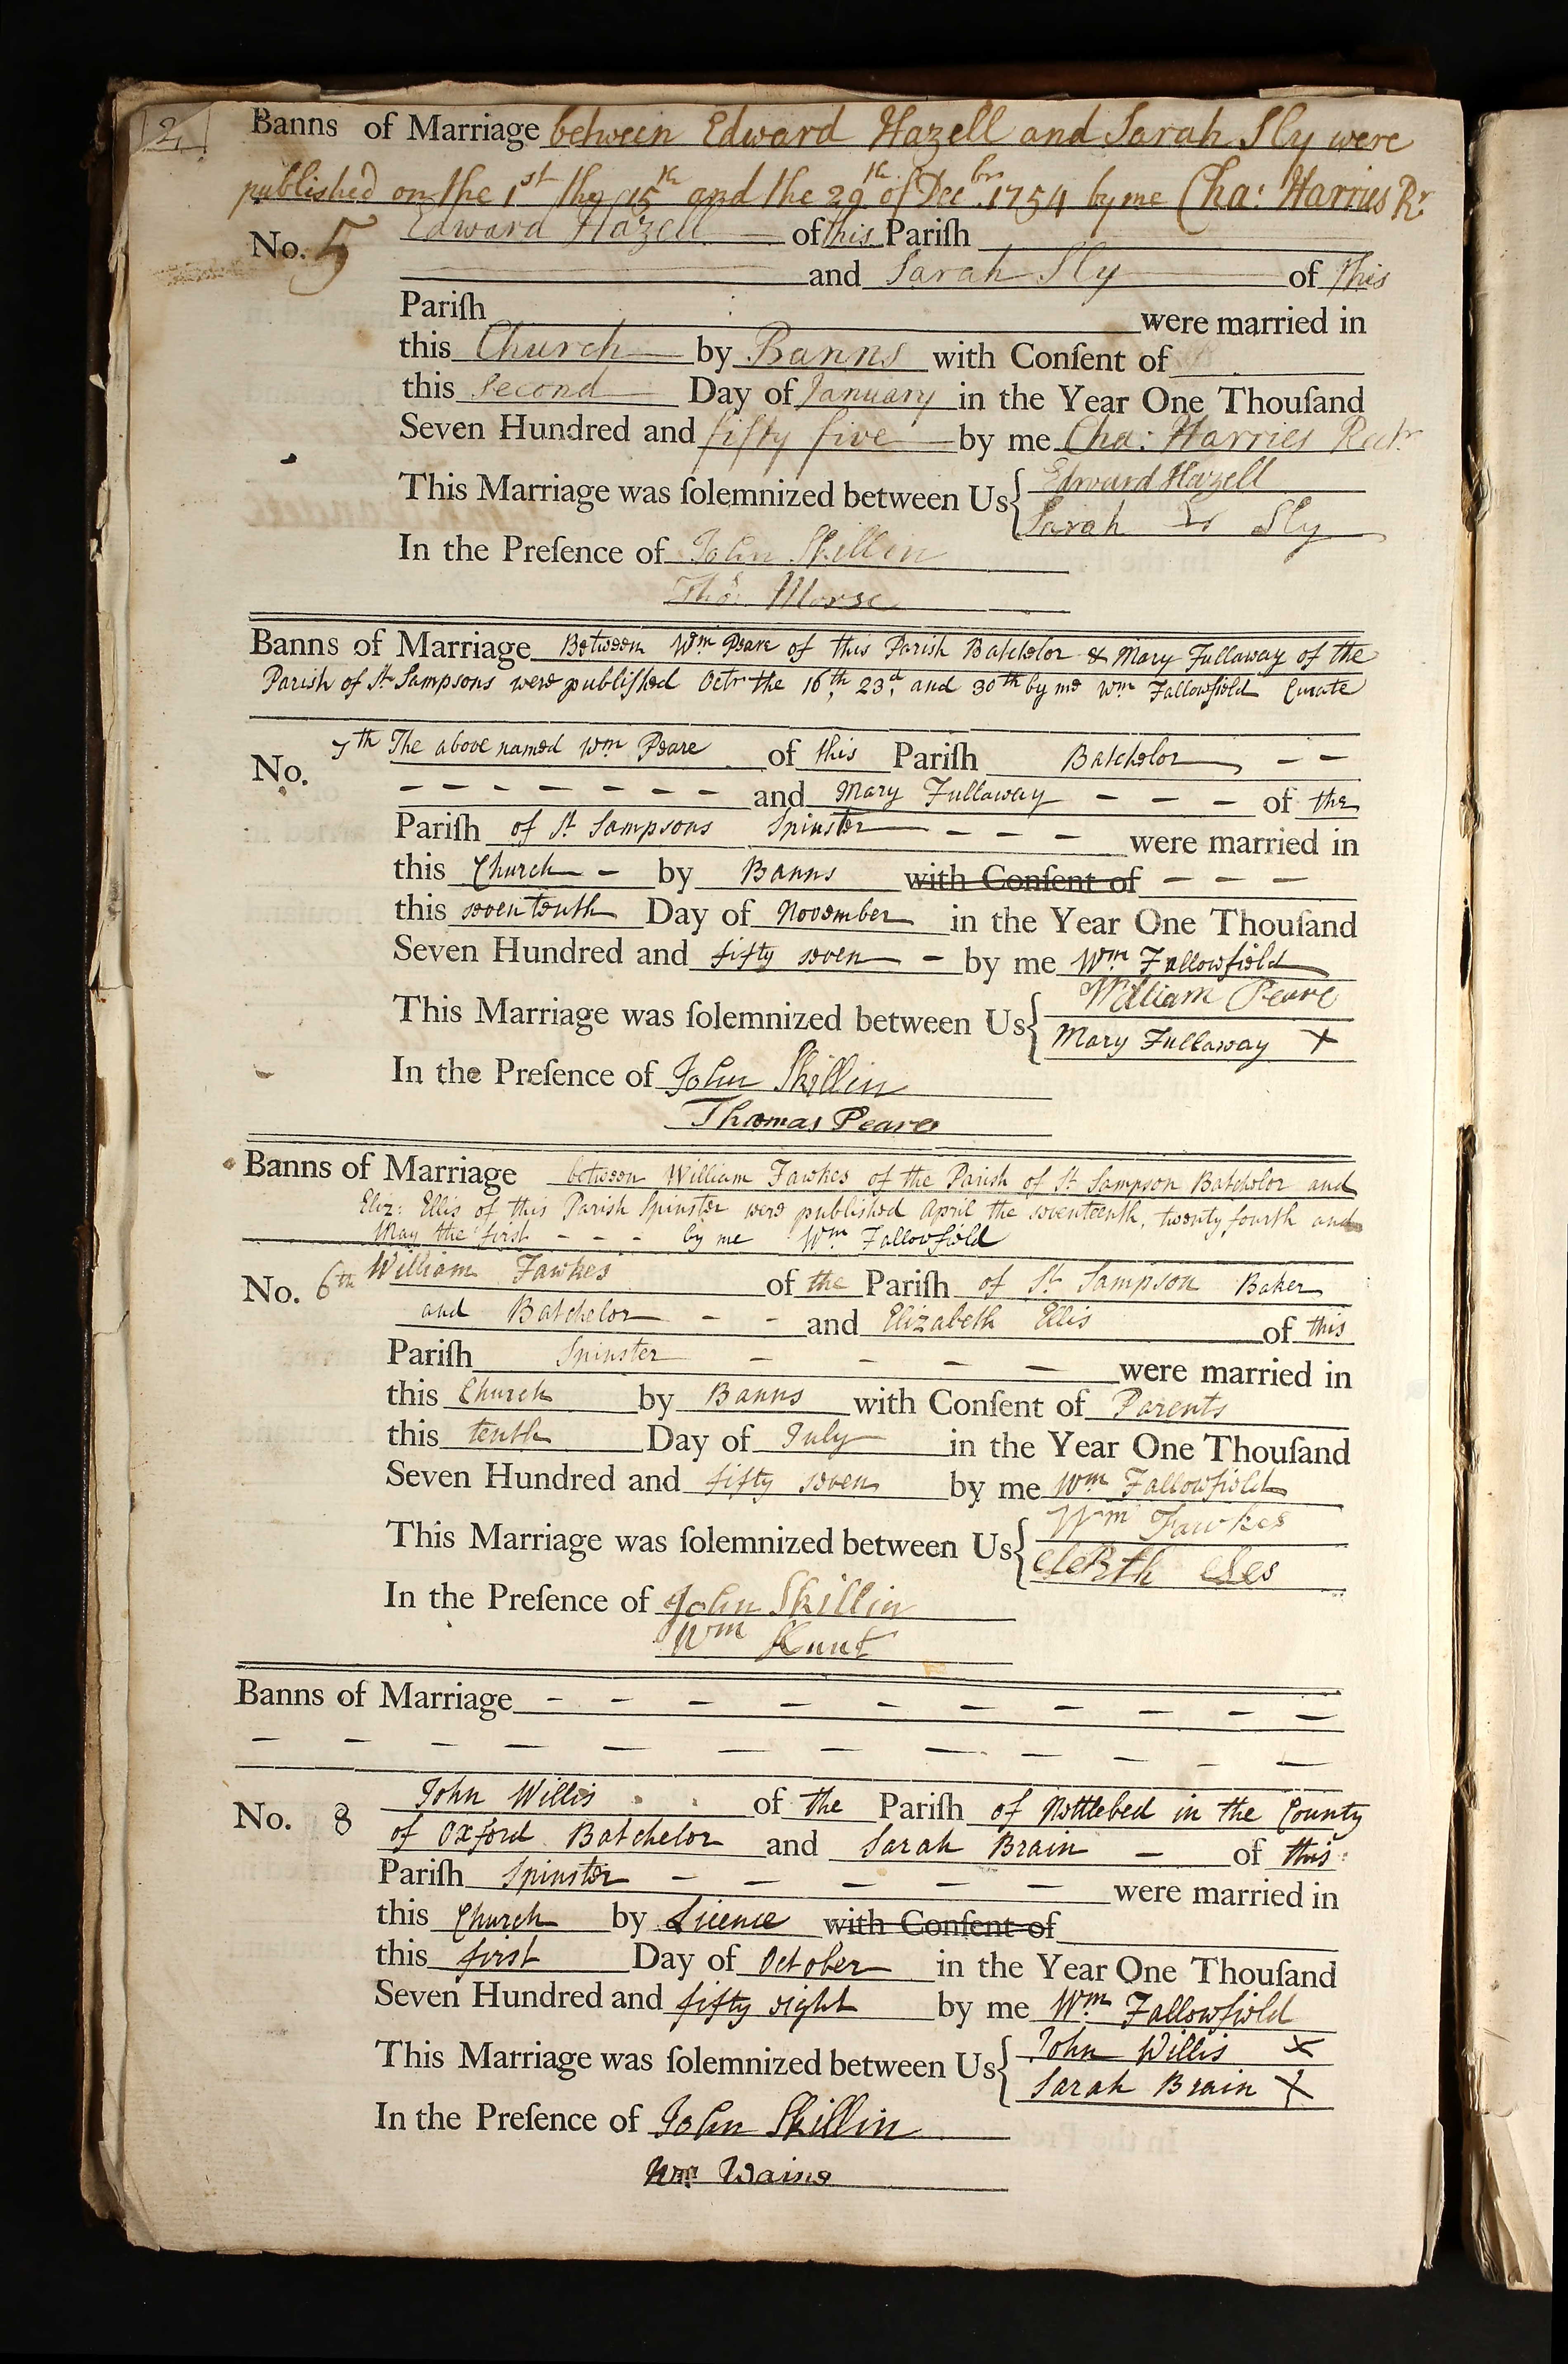 2
Banns of Marriage between Edward Hazell and Sarah Sly were
published on the 1st the 15th and the 29th of Decbr 1754 by me Cha: Harries Rr.
No. 5 Edward Hazell of this Pariſh
and Sarah Sly of this
Pariſh were married in
this Church by Banns with Conſent of
this Second Day of January in the Year One Thouſand
Seven Hundred and fifty five by me Cha: Harries Rectr.
This Marriage was ſolemnized between Us { Edward Hazell
Sarah Sly
In the Preſence of John Skillin
Thos. Morse
Banns of Marriage Between Wm Peare of this Parish Batchelor & Mary Fullaway of the
Parish of St Sampsons were published Octr the 16th, 23d, and 30th by me Wm Fallowfield Curate
No. 7th The above named Wm Peare of this Pariſh Batchelor - -
- - - - - - - - and Mary Fullaway - - - of the
Pariſh of St Sampsons Spinster - - - were married in
this Church - by Banns with Conſent of - - -
this seventeenth Day of November in the Year One Thouſand
Seven Hundred and fifty seven - by me Wm Fallowfield
This Marriage was ſolemnized between Us { William Peare
Mary Fullaway X
In the Preſence of John Skillin
Thomas Peare
Banns of Marriage between William Fawkes of the Parish of St Sampson Batchelor and
Eliz: Ellis of this Parish Spinster were published April the seventeenth, twenty fourth and
May the first - - - by me Wm Fallowfield
No. 6th William Fawkes of the Pariſh of St Sampson Baker
and Batchelor - - and Elizabeth Ellis of this
Pariſh Spinster - - - - were married in
this Church by Banns with Conſent of Parents
this tenth Day of July in the Year One Thouſand
Seven Hundred and fifty seven by me Wm Fallowfield
This Marriage was ſolemnized between Us { Wm Fawkes
In the Preſence of John Skillin
Wm Hunt
Banns of Marriage - - - - - - - - - -
- - - - - - - - - - - -
No. 8 John Willis of the Pariſh of Nottlebed in the County
of Oxford Batchelor and Sarah Brain - of this
Pariſh Spinster - - - - - were married in
this Church by Licence with Conſent of
this first Day of October in the Year One Thouſand
Seven Hundred and fifty eight by me Wm Fallowfield
This Marriage was ſolemnized between Us { John Willis X
Sarah Brain X
In the Preſence of John Skillin
Wm Waine